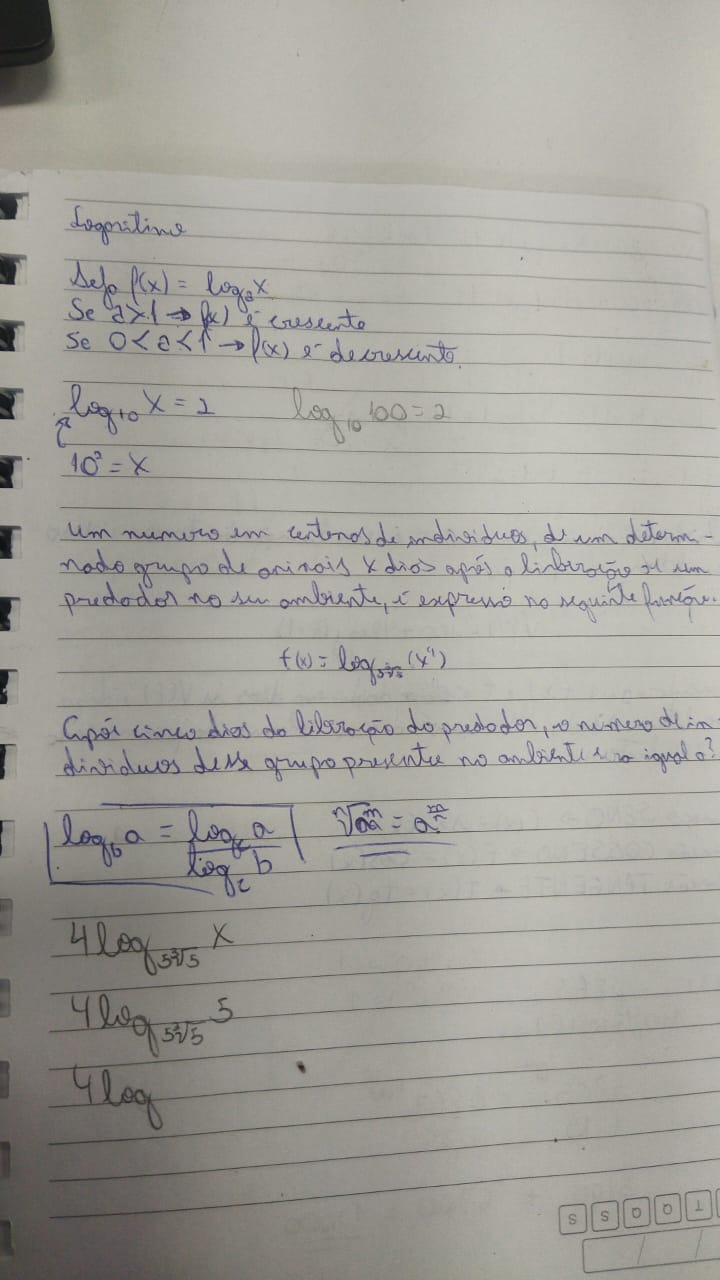 Logaritimo
Seja f(x) = log₂x
Se a>1 → f(x) é crescente
Se 0<a<1 → f(x) é decrescente.
log₁₀ x = 2 log₁₀ 100 = 2
10² = x
Um numero em centenas de individuos, de um determi-
nado grupo de animais x dias após a liberação de um
predador no seu ambiente, é expresso na seguinte função.
f(x) = log (x⁴)
Após cinco dias da liberação do predador, o número de in-
dividuos desse grupo presente no ambiente igual a?
log_b a = log_c a / log_c b ⁿ√aᵐ = a^(m/n)
4 log_{5∛5} x
4 log_{5∛5} 5
4 log
T Q Q S S